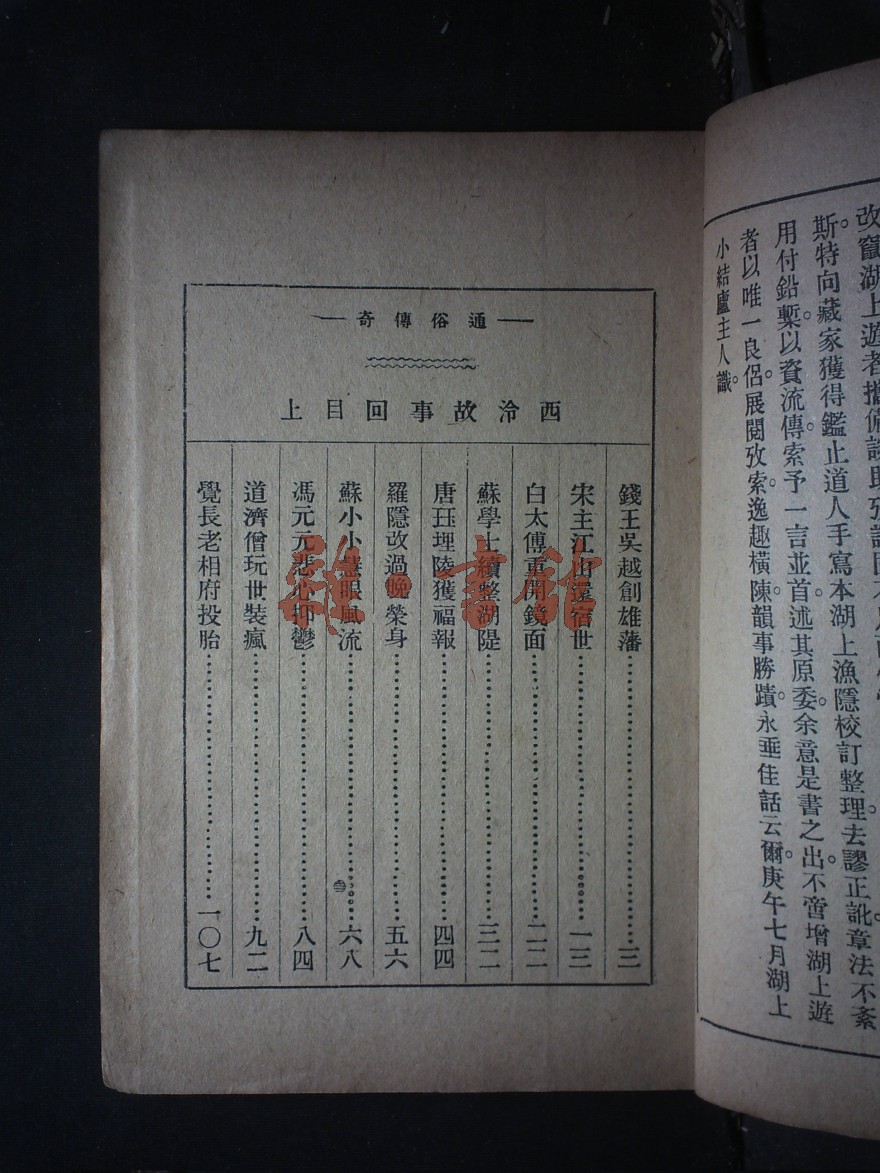 斯特向藏家獲得鑑止道人手寫本湖上漁隱校訂整理。去謬正訛。章法不紊
用付鉛槧。以資流傳。索予一言並首。述其原委。余意是書之出。不啻增湖上遊
者以唯一良侶。展閱攷索。逸趣橫陳。韻事勝蹟。永垂佳話云爾。庚午七月湖上
小結廬主人識。
通俗傳奇
西泠故事回目上
錢王吳越創雄藩……三
宋主江山還宿世……一三
白太傅重開鏡面……二二
蘇學士續整湖隄……三二
唐珏埋陵獲福報……四四
羅隱改過晚榮身……五六
蘇小小慧眼風流……六八
馮元元悲心抑鬱……八四
道濟僧玩世裝瘋……九二
覺長老相府投胎……一〇七